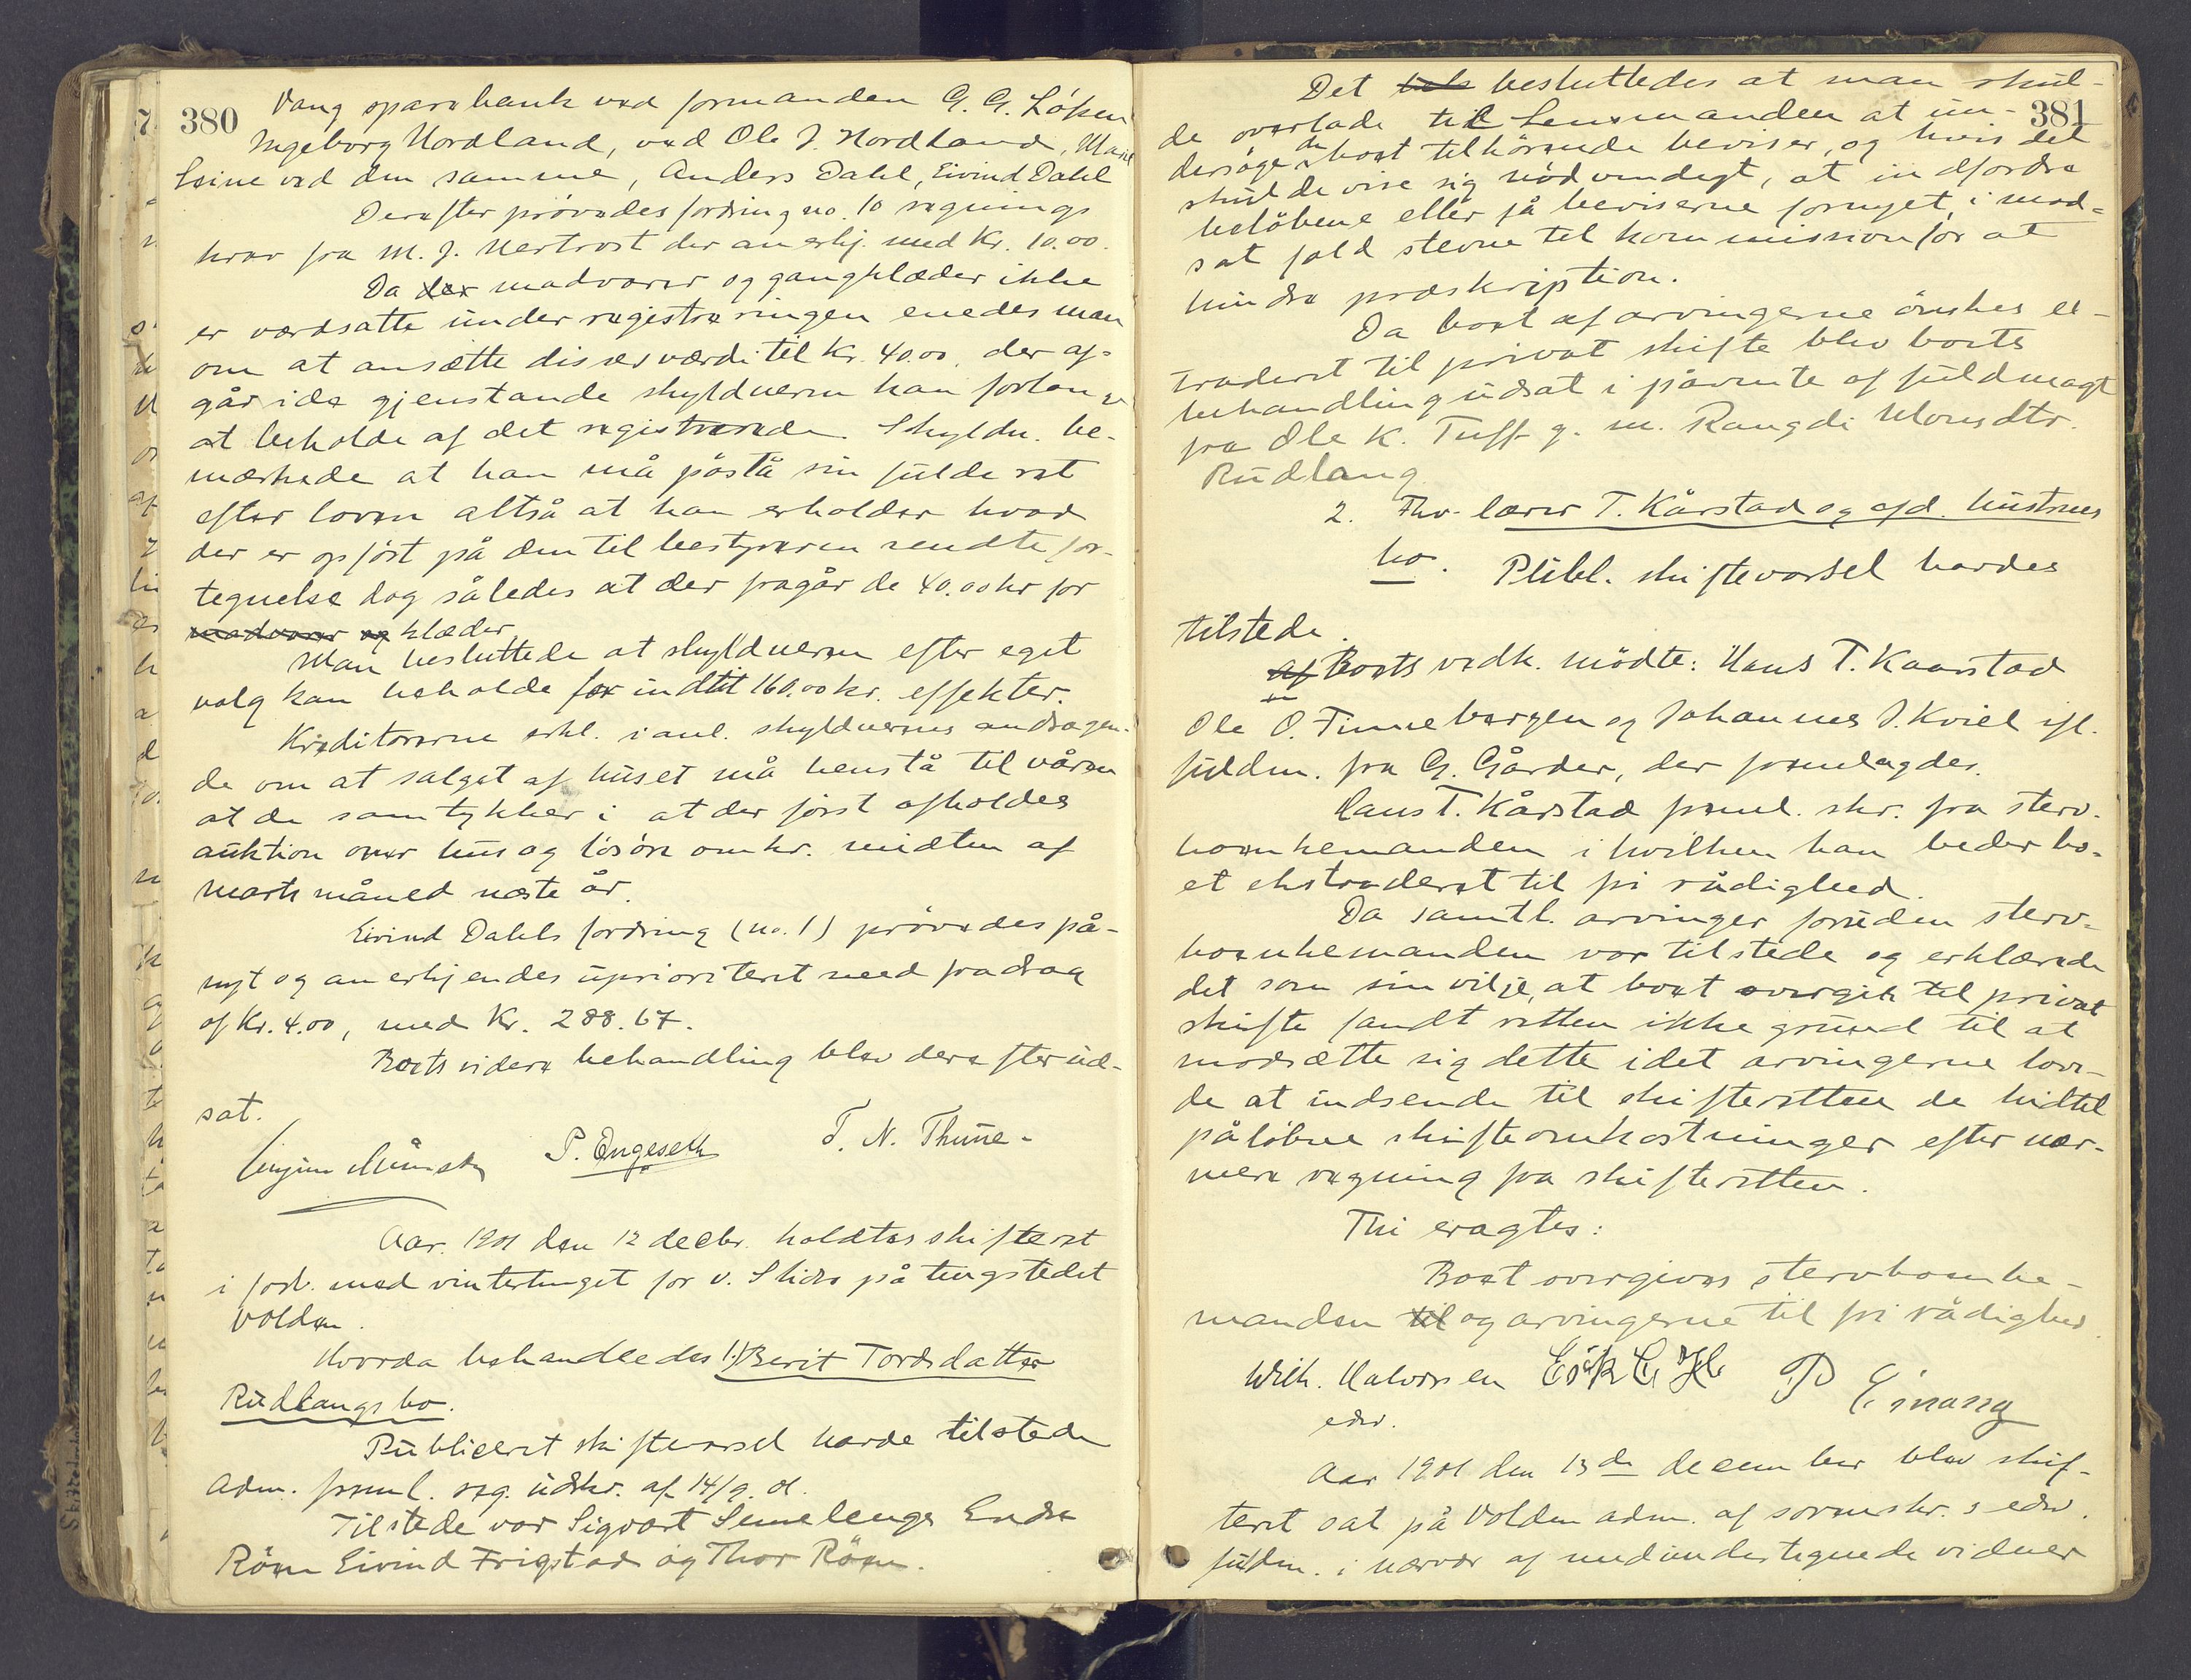 380
Vang sparebank ved formanden G. G. Løken
Ingeborg Nordland, ved Ole J. Nordland, Mari
Leine ved den samme, Anders Dahl, Eivind Dahl
Derefter prøvedes fordring no. 10 regnings
krav fra M. J. Nertrost der anerkj. med Kr. 10.00.
Da der madvarer og gangklæder ikke
er værdsatte under registreringen enedes man
om at ansætte disses værdi til Kr. 40.00, der af-
går i de gjenstande skyldneren kan forlange
at beholde af det registrerede. Skyldn. be-
mærkede at han må påstå sin fulde ret
efter loven altså at han erholder hvad
der er opført på den til bestyreren sendte for-
tegnelse dog således at der fragår de 40.00 kr for
madvarer og klæder
Man besluttede at skyldneren efter eget
valg kan beholde for indtil 160.00 kr. effekter.
Kreditorerne erkl. i anl. skyldnerens andragen-
de om at salget af huset må henstå til våren
at de samtykker i at der først afholdes
auktion over hus og løsøre omkr. midten af
marts måned næste år.
Eivind Dahls fordring (no. 1) prøvedes på-
nyt og anerkjendes uprioriteret med fradrag
af Kr. 4.00, med Kr. 288.67.
Boets videre behandling blev derefter ud-
sat.
P. Engeseth T. N. Thune.
Aar 1901 den 12 decbr. holdtes skifteret
i forb. med vintertinget for v. Slidre på tingstedet
Volden.
Hvorda behandledes 1.) Berit Tordsdatter
Rudlangs bo.
Publiceret skiftevarsel havde tilstede
Adm. freml. reg. udskr. af 14/9. 01.
Tilstede var Sigvart Semelenge Endre
Røen Eivind Frigstad og Thor Røen.
381
Det blev besluttedes at man skul-
de overlade til Lensmanden at un-
dersøge de boet tilhørende beviser, og hvis det
skulde vise sig nødvendigt, at indfordre
beløbene eller få beviserne fornyet, i mod-
sat fald stevne til kommission for at
hindre præskription.
Da boet af arvingerne ønskes ex-
traderet til privat skifte blev boets
behandling udsat i påvente af fuldmagt
fra Ole K. Tuff g. m. Rangdi Monsdtr.
Rudlang
2. Fhv. lærer T. Kårstad og afd. hustrues
bo.
Publ. skiftevarsel havdes
tilstede.
af Boets vedk. mødte: Hans T. Kaarstad
Ole O. Finneborgen og Johannes J. Kviel ifl.
fuldm. fra G. Gårder, der fremlagdes.
Hans T. Kårstad freml. skr. fra sterv-
boenkemanden i hvilken han beder bo-
et ekstraderet til fri rådighed.
Da samtl. arvinger foruden sterv-
boenkemanden var tilstede og erklærede
det som sin vilje, at boet overgik til privat
skifte fandt retten ikke grund til at
modsætte sig dette idet arvingerne love-
de at indsende til skifteretten de hidtil
påløbne skifteomkostninger efter nær-
mere regning fra skifteretten.
Thi eragtes:
Boet overgives stervboenke-
manden til og arvingerne til fri rådighed.
Wilh. Halvorsen
edsv.
Einang
Aar 1901 den 13de december blev skif-
teret sat på Volden adm. af sorenskr. s edsv.
fuldm. i nærvær af medundertegnede vidner